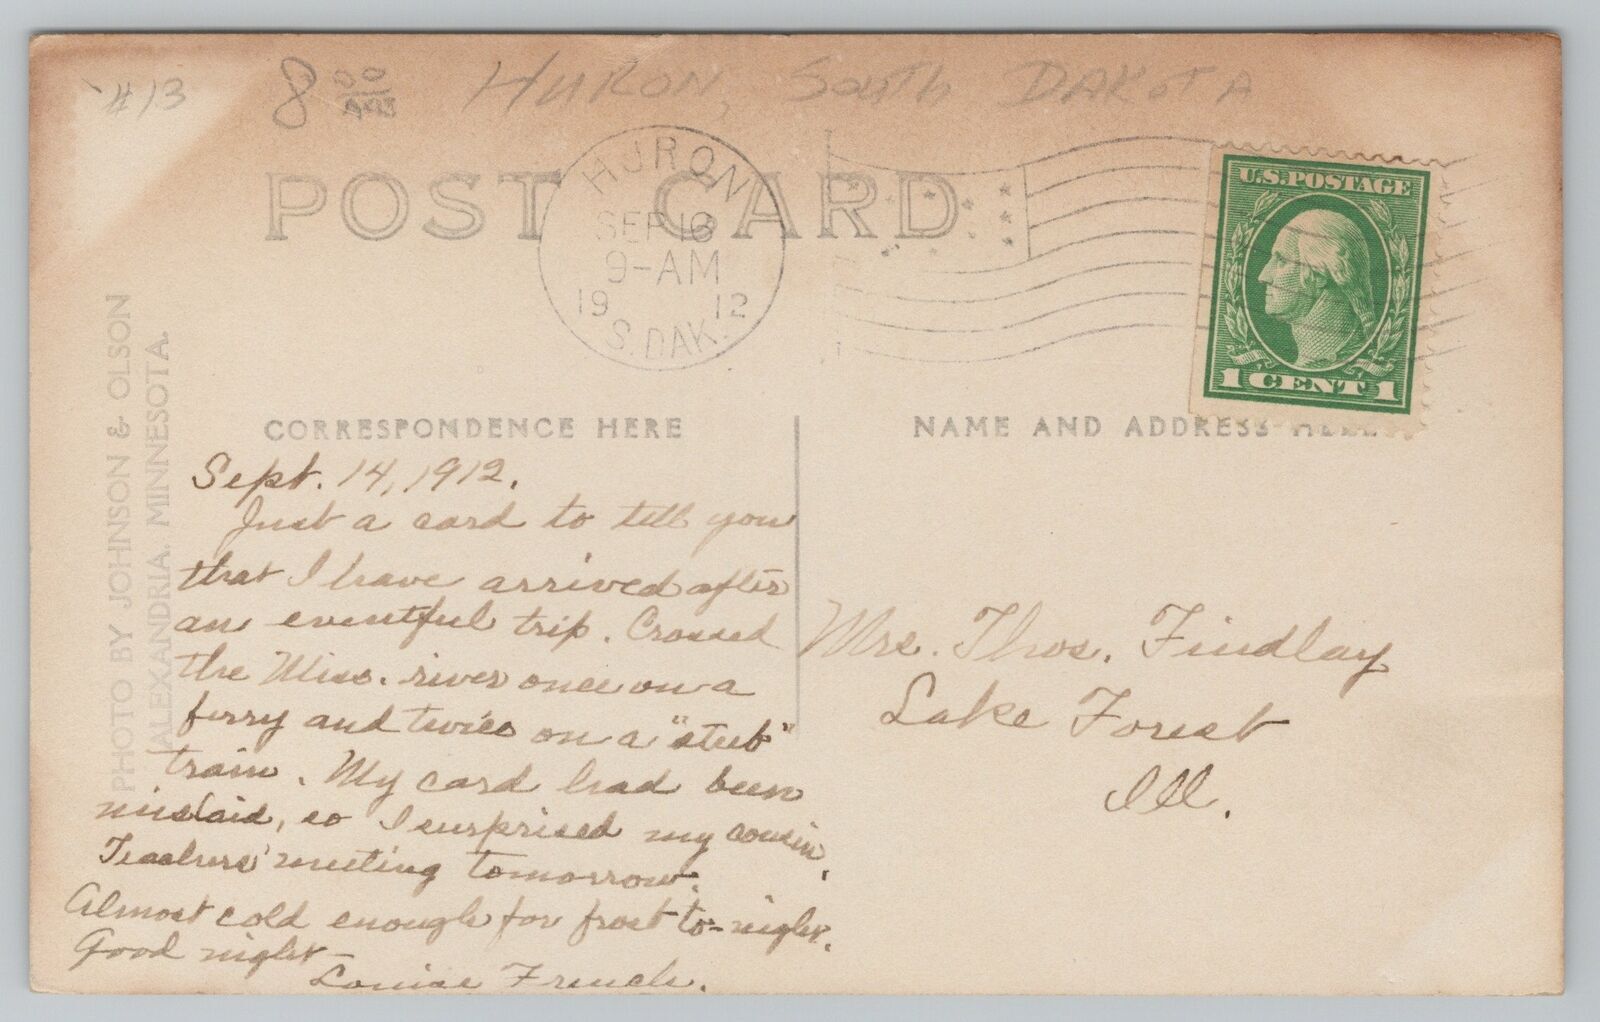 #13 8 00 Huron, South Dakota
POST CARD
HURON
SEP 16
9-AM
19 12
S. DAK.
U.S. POSTAGE
1 CENT 1
PHOTO BY JOHNSON & OLSON
ALEXANDRIA, MINNESOTA.
CORRESPONDENCE HERE
NAME AND ADDRESS HERE
Sept. 14, 1912.
Just a card to tell you
that I have arrived after
an eventful trip. Crossed
the Miss. river once on a
ferry and twice on a "stub"
train. My card had been
mislaid, so I surprised my cousin.
Teachers' meeting tomorrow.
Almost cold enough for frost to-night.
Good night—
Louise French.
Mrs. Thos. Findlay
Lake Forest
Ill.